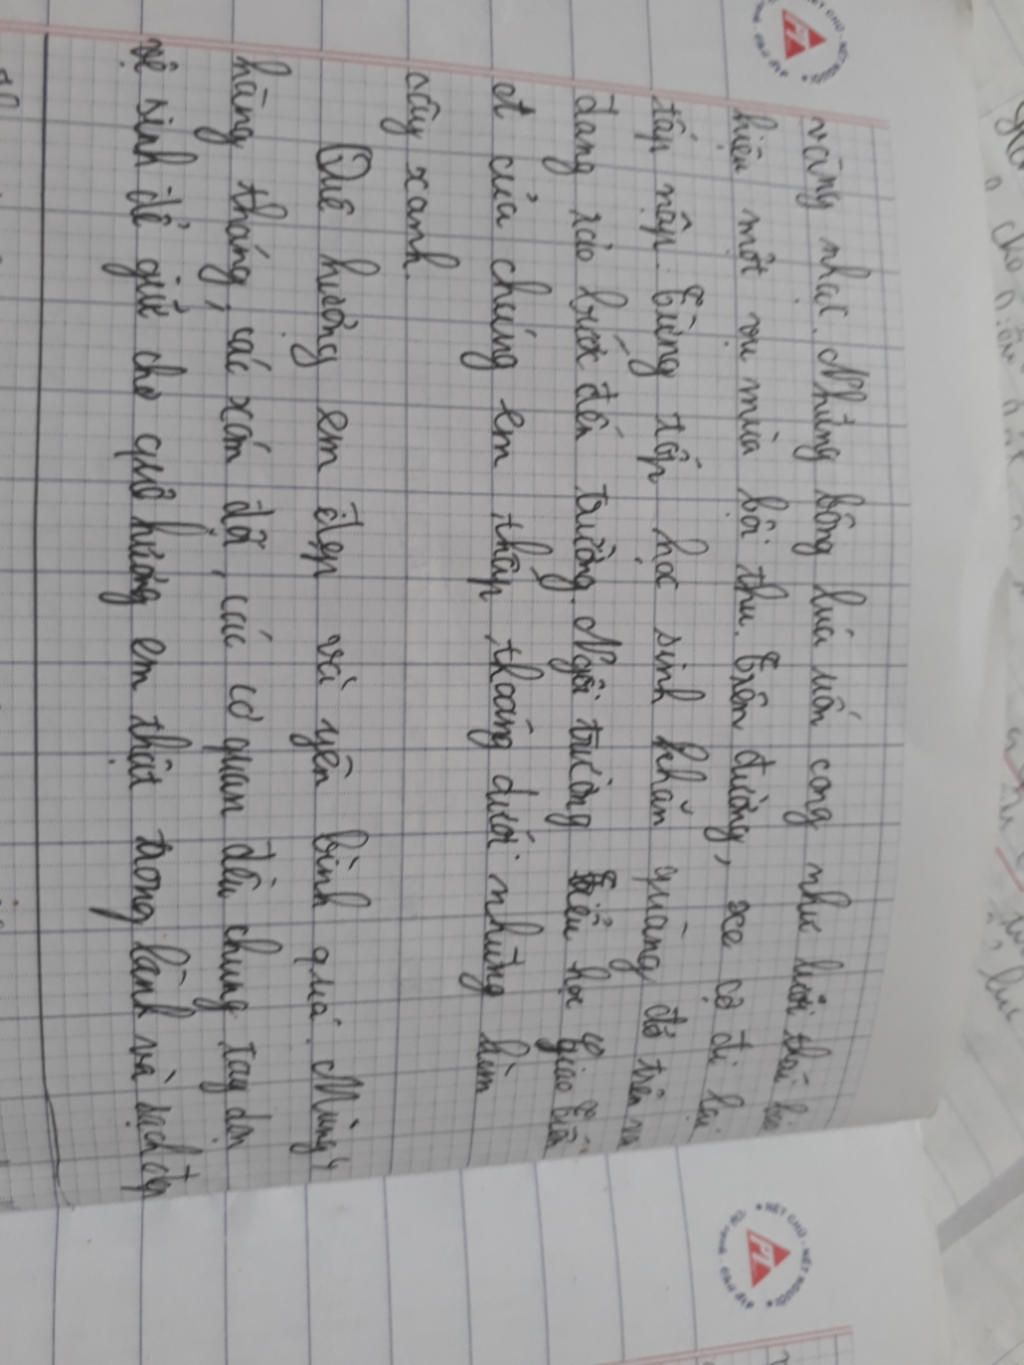 vàng nhạt. Những bông lúa uốn cong như lưỡi
hiện một vụ mùa bội thu. Trên đường, xe cộ đi lại
tấp nập. Từng tốp học sinh khăn quàng đỏ trên
đang rảo bước đến trường. Ngôi trường tiểu học Giao
A của chúng em thấp thoáng dưới những hàm
cây xanh.
Quê hương em đẹp và yên bình quá. Mùng 4
hàng tháng, các xóm đội, các cơ quan đều chung tay dọn
vệ sinh để giữ cho quê hương em thật trong lành và sạch đẹp
NÉT CHỮ - NẾT NGƯỜI
PL
NÉT CHỮ - NẾT NGƯỜI
PL
cho